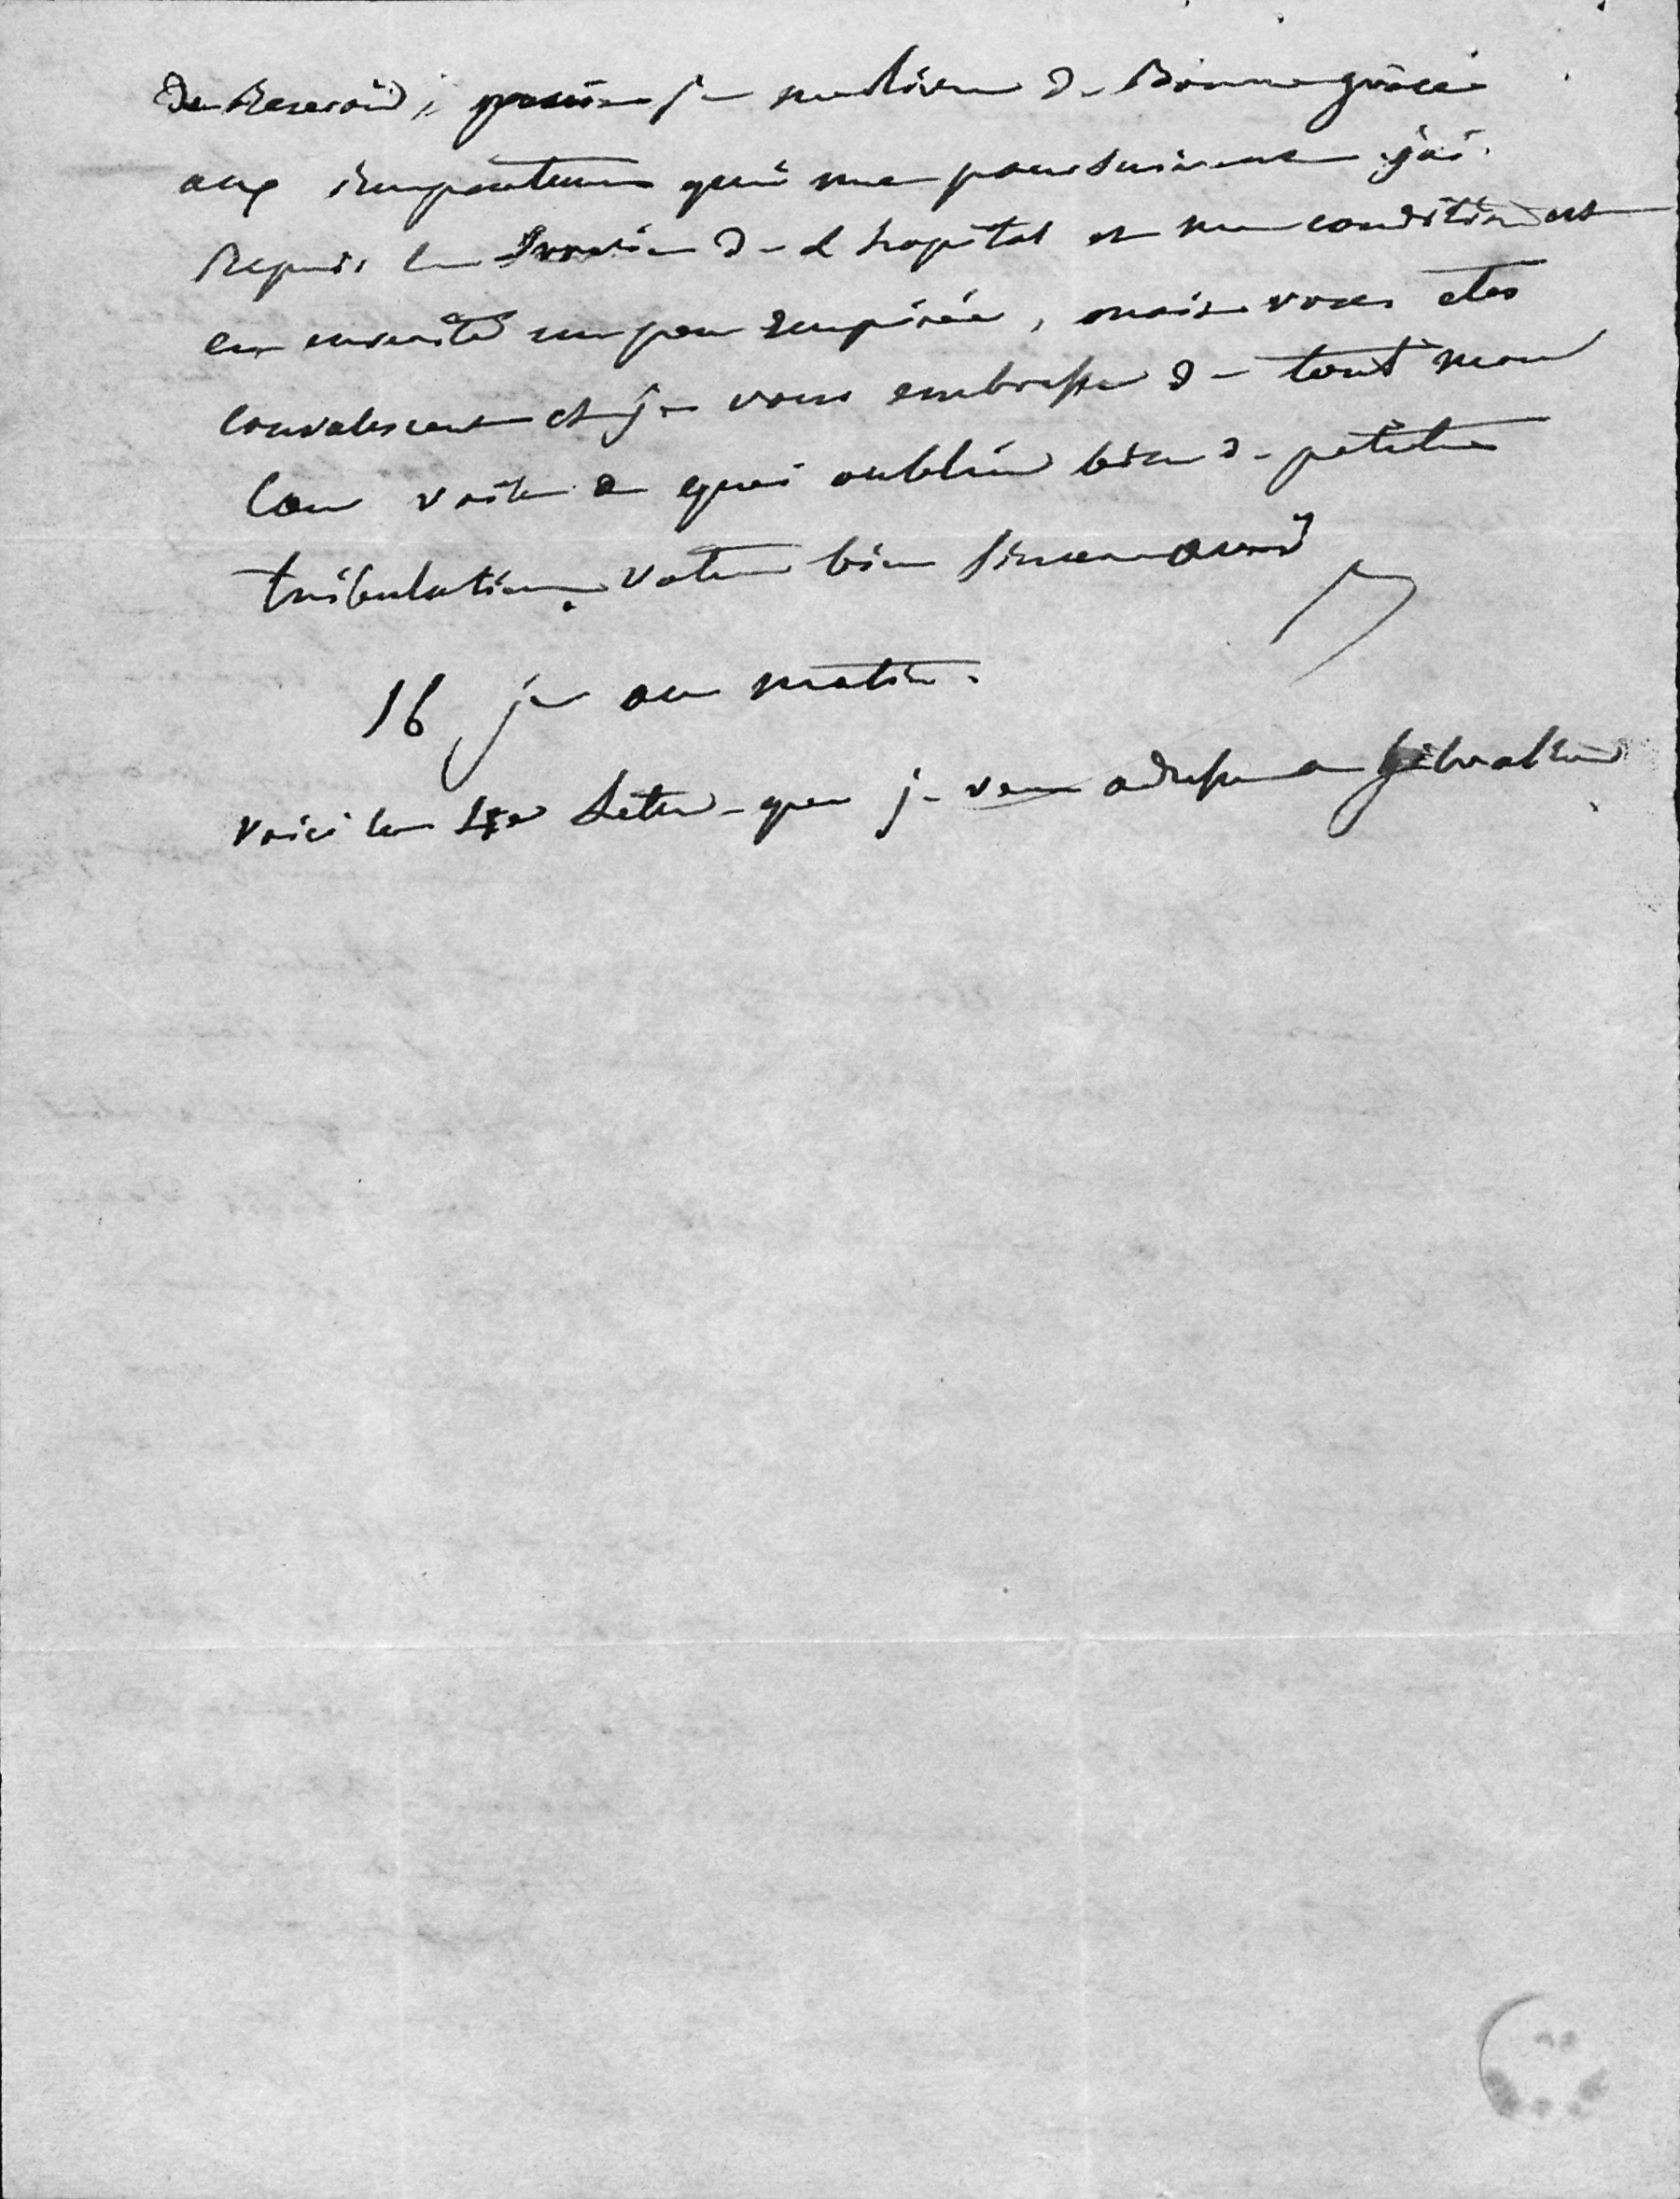 de Recevoir, je me livre de Bonne grâce
aux importuns qui me poursuivent j'ai
Repris le Service de l hopital et ma condition est
en verité un peu empirée, mais vous etes
convalescent et je vous embrasse de tout mon
Coeur voila de quoi oublier bien de petites
tribulations. Votre bien sincere ami
16 au matin.
Voici la Letre que je vous adresse a Gibraltar